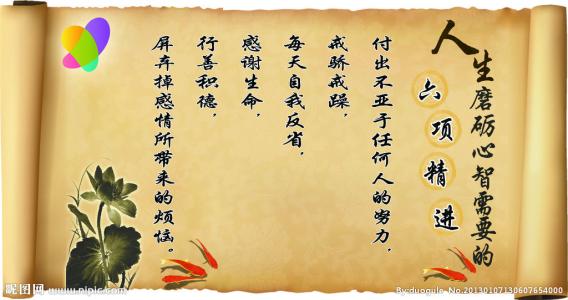 人生磨砺心智需要的
六项精进
付出不亚于任何人的努力，
戒骄戒躁，
每天自我反省，
感谢生命，
行善积德，
屏弃掉感情所带来的烦恼。
昵图网 www.nipic.com
By:duogule No.20130107130607654000